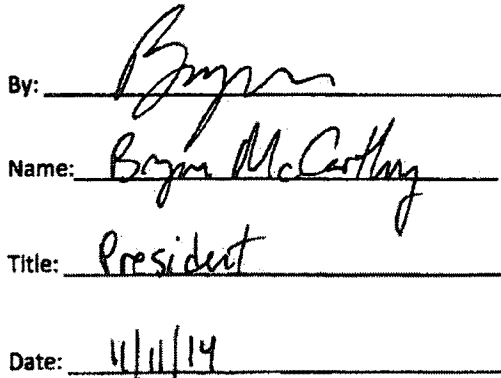 By: Bryn
Name: Bryn McCarthy
Title: President
Date: 11/11/14